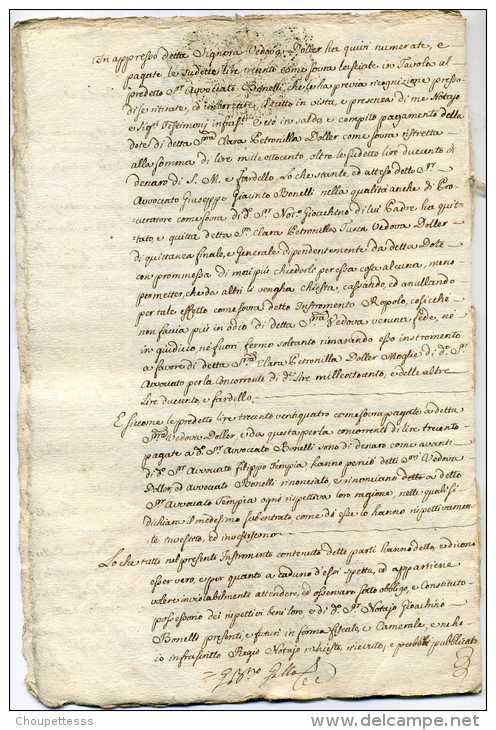 In appresso detta Signora Vedova Doller ha quivi numerate, e
pagate le sudette lire trecento come sovra lasciate in Tavola al
predetto Sr Avvocato Bonelli, che se ha previa ricognizione presso
di se ritirate, ed imborsate, il tutto in vista, e presenza di me Notajo
e Sigri Testimoni infratti E ciò in saldo, e compito pagamento della
dote di detta Sra Clara Petronilla Doller come sovra ristretta
alla somma di lire mille ottocento, oltre le sudette lire ducento di
denaro di S. M. e fardello. Lo che stante, ed atteso detto Sr
Avvocato Giuseppe Giacinto Bonelli nella qualità anche di Pro-
curatore come sovra di do Sr Noto Giochino di lui Padre ha quit-
tato, e quitta detta Sra Clara Petronilla Turca Vedova Doller
di quittanza finale, e generale dipendentemente da detta Dote
con promessa di mai più chiederle per essa cosa alcuna, meno
permetter, che da altri le vengha chiesta, cassando, ed anullando
per tale effetto come sovra detto Instromento Ropolo, cosicchè
non faccia più in odio di detta Sra Vedova veruna fede, nè
in giudicio nè fuori fermo soltanto rimanendo esso instromento
a favore di detta Sra Clara Petronilla Doller Moglie di do Sr
Avvocato per la Concorrente di de Lire mille ottocento, e delle altre
Lire ducento, e fardello.
E siccome le predette lire trecento ventiquatro come sovra pagate a detta
Sra Vedova Doller, e da questa per la concorrente di lire trecento
pagate a do Sr Avvocato Bonelli sono di denaro come avanti
di do Sr Avvocato Filippo Tempia hanno perciò detti Sra Vedova
Doller, ed Avvocato Bonelli rinonciato, e rinonciano detto a detto
Sr Avvocato Tempia ogni rispettiva loro ragione, nelle quali si
dichiara il medesimo subentrato come di esse lo hanno rispettivamen-
te investito, ed investiscono.
Lo che tutto nel presente Instromento contenuto dette parti hanno detto, e dicono
esser vero, e per quanto a caduno d'essi spetta, ed appartiene
volere inviolabilmente attendere, ed osservare sotto obbligo, e Constituto
possessorio dei rispettivi beni loro, e di do Sr Notajo Gioachino
Bonelli presenti, e futuri in forma fiscale, e Camerale, e ne ho
io infrascritto Regio Notajo richiesto, ricevuto, e pubblicato
Choupettesss
www.delcampe.net